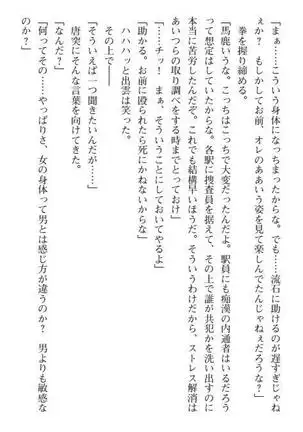 「まぁ……こういう身体になっちまったんだけどな……。流石に助けるのが遅すぎじゃね
ぇか？　もしかしてお前、オレのああいう姿を見て楽しんでたんじゃねぇだろうな？」
拳を握り締める。
「馬鹿いうな。こっちはこっちで大変だったんだよ。駅員にも痴漢の内通者はいるだろう
って想定はしていたからな。各駅に捜査員を据えて、その上で誰が共犯かを洗い出すのに
本当に苦労したんだぞ。これでも結構早いほうだ。そういうわけだから、ストレス解消は
あいつらの取り調べをする時までとっておけ」
「……チッ！　まぁ、そういうことにしておいてやるよ」
「助かる。お前に殴られたら死にかねないからな」
ハハハッと出雲は笑った。
その上で――
「そういえば一つ聞きたいんだが……」
唐突にそんな言葉を向けてきた。
「なんだ？」
「何ってその……やっぱりさ、女の身体って男とは感じ方が違うのか？　男よりも敏感な
のか？」